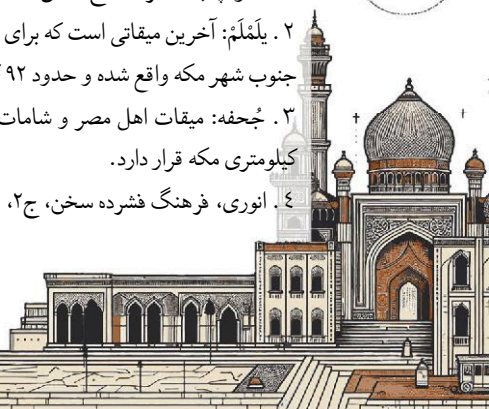 ۲. یلَمْلَمْ: آخرین میقاتی است که برای
جنوب شهر مکه واقع شده و حدود ۹۲
۳. جُحفه: میقات اهل مصر و شامات
کیلومتری مکه قرار دارد.
٤. انوری، فرهنگ فشرده سخن، ج۲،